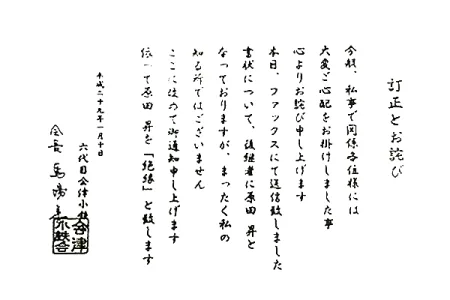 訂正とお詫び
今般、私事で関係各位様には
大変ご心配をお掛けしました事
心よりお詫び申し上げます
本日、ファックスにて送信致しました
書状について、後継者に原田 昇と
なっておりますが、まったく私の
知る所ではございません
ここに改めて御通知申し上げます
依って原田 昇を「絶縁」と致します
平成二十九年一月十日
六代目会津小鉄
会長 馬場
会津
小鉄会